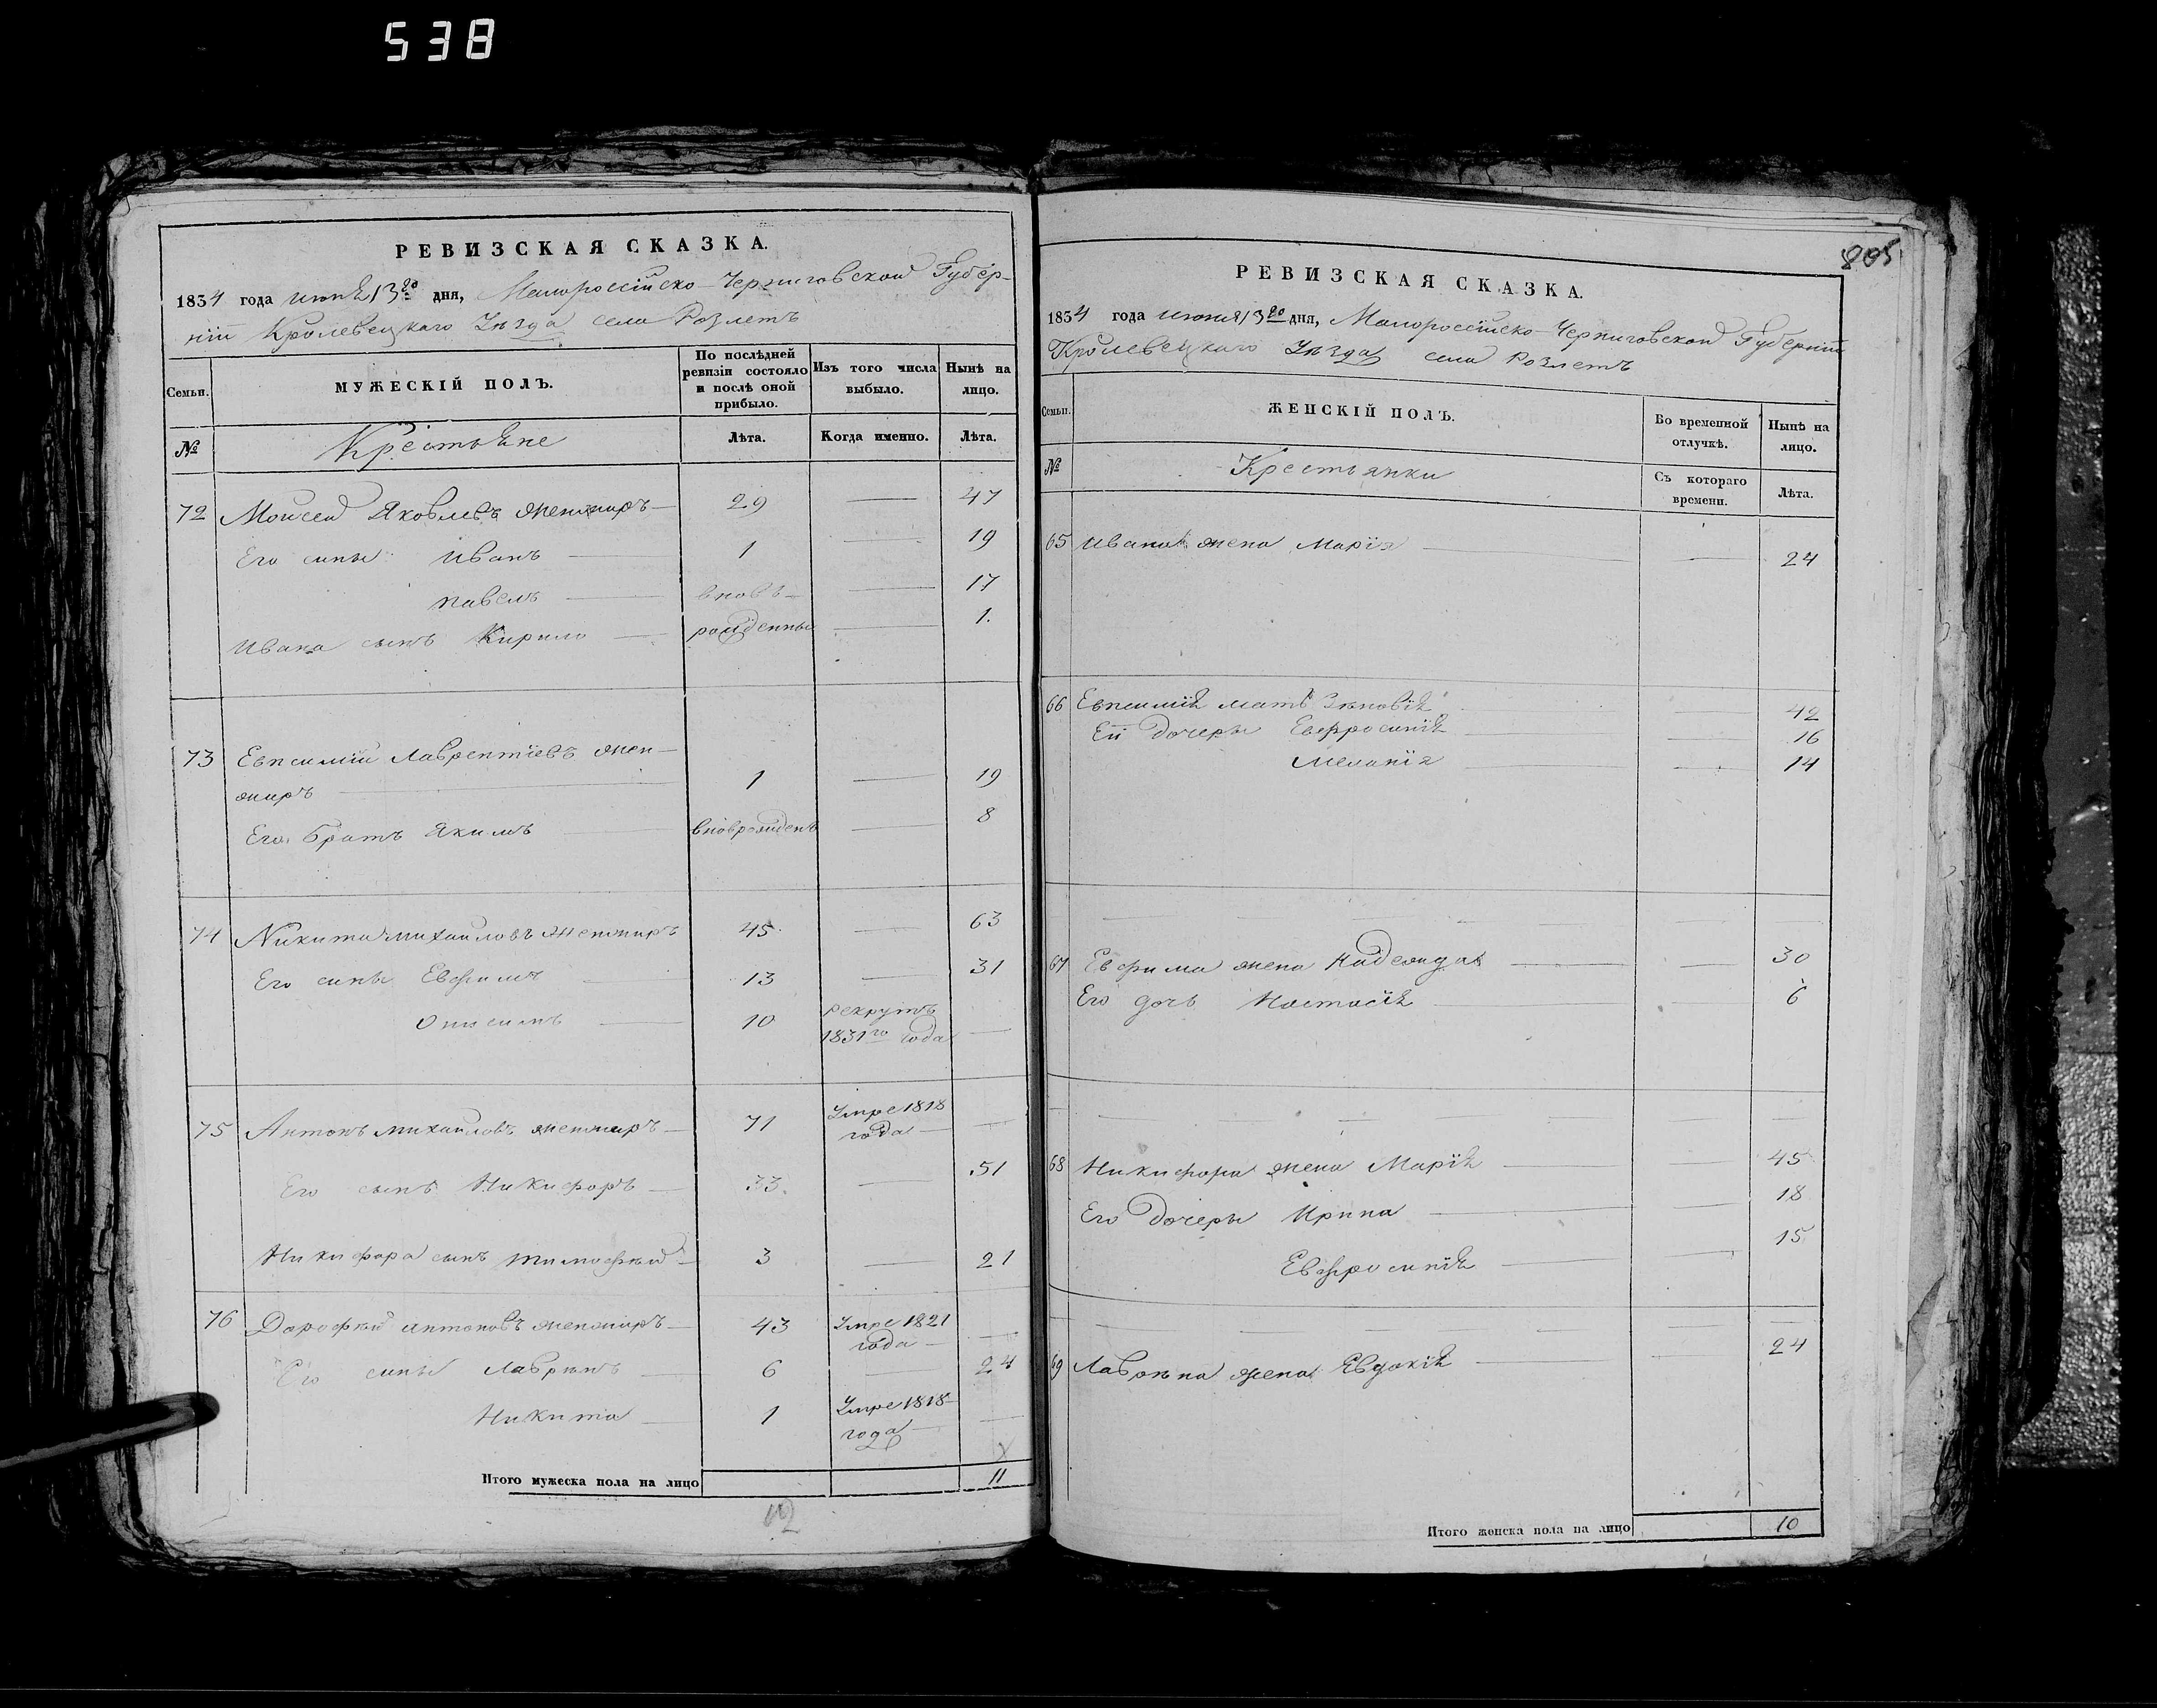 538
РЕВИЗСКАЯ СКАЗКА.
1834 года июня 13го дня, Малороссійско-Черниговской Губер-
ніи Кролевецкаго Уѣзда села Розлетъ
Семьи.
МУЖЕСКІЙ ПОЛЪ.
По послѣдней ревизіи состояло и послѣ оной прибыло.
Изъ того числа выбыло.
Нынѣ на лицо.
№
Крестьяне
Лѣта.
Когда именно.
Лѣта.
72 Моисей Яковлевъ Женжиръ 29 — 47
Его сыны Иванъ 1 — 19
Павелъ вновь — 17
Ивана сынъ Кирило рожденны — 1.
73 Евпсимій Лаврентіевъ Жен-
жиръ 1 — 19
Его братъ Якимъ вноврожденъ — 8
74 Никита Михайловъ Женжиръ 45 — 63
Его сыны Евфимъ 13 — 31
Онисимъ 10 рекрутъ
1831го года —
75 Антонъ Михайловъ Женжиръ 71 Умре 1818
года —
Его сынъ Никифоръ 33. — 51
Никифора сынъ Тимофѣй 3 — 21
76 Дорофѣй Антоновъ Женжиръ 43 Умре 1821
года —
Его сыны Лаврѣнъ 6 — 24
Никита 1 Умре 1818
года —
Итого мужеска пола на лицо 11
805
РЕВИЗСКАЯ СКАЗКА.
1834 года июня 13го дня, Малороссійско-Черниговской Губерніи
Кролевецкаго Уѣзда села Розлетъ
Семьи.
ЖЕНСКІЙ ПОЛЪ.
Во временной отлучкѣ.
Нынѣ на лицо.
№
Крестьянки
Съ котораго времени.
Лѣта.
65 Ивана жена Марія — 24
66 Евпсимія мать Зѣновія — 42
Ей дочеры Евфросинія — 16
Меланія — 14
67 Евфима жена Надежда — 30
Его дочь Настасія — 6
68 Никифора жена Марія — 45
Его дочеры Ирина — 18
Евфросинія — 15
69 Лаврѣна жена Евдокія — 24
Итого женска пола на лицо 10